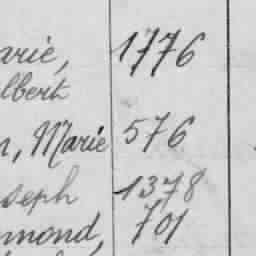 arie, 1776
lbert
n, Marie 576
seph 1378
mond, 701